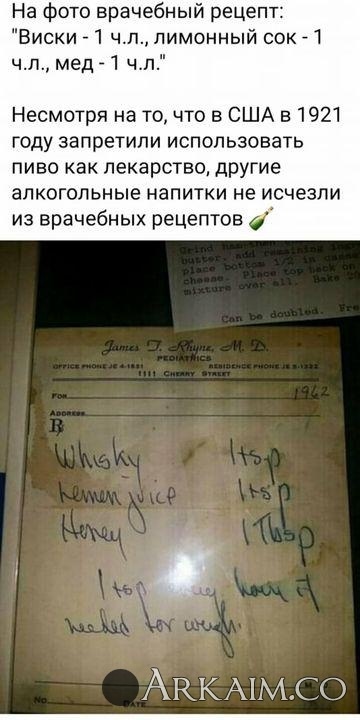 На фото врачебный рецепт:
"Виски - 1 ч.л., лимонный сок - 1
ч.л., мед - 1 ч.л."
Несмотря на то, что в США в 1921
году запретили использовать
пиво как лекарство, другие
алкогольные напитки не исчезли
из врачебных рецептов
butter, add remaining
place bottom 1/2 in
cheese. Place top back on
mixture over all. Bake
Can be doubled. Fre
James T. Rhyne, M. D.
PEDIATRICS
OFFICE PHONE JE 4-1851 RESIDENCE PHONE JE 5-1322
1111 CHERRY STREET
FOR 1962
ADDRESS
℞
Whisky 1 tsp
Lemon juice 1 tsp
Honey 1 Tbsp
1 tsp every hour if
needed for cough.
No. DATE
ARKAIM.CO